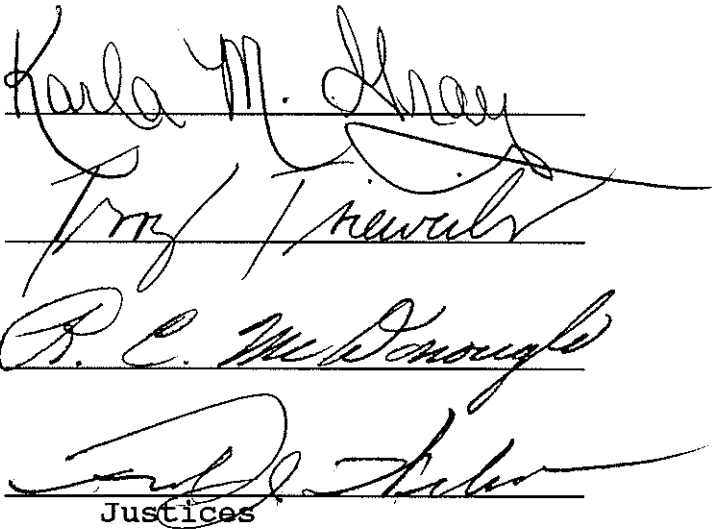 Karla M. Gray
Terry Trieweiler
R. C. McDonough
Justices